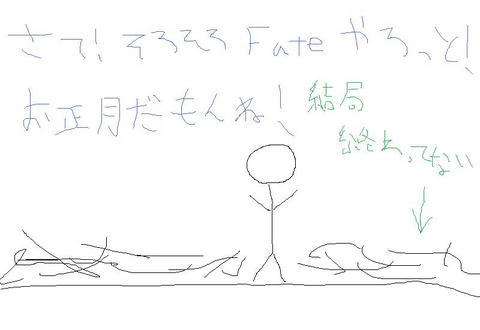 さて!そろそろFateやろっと!
お正月だもんね!
結局
終わってない